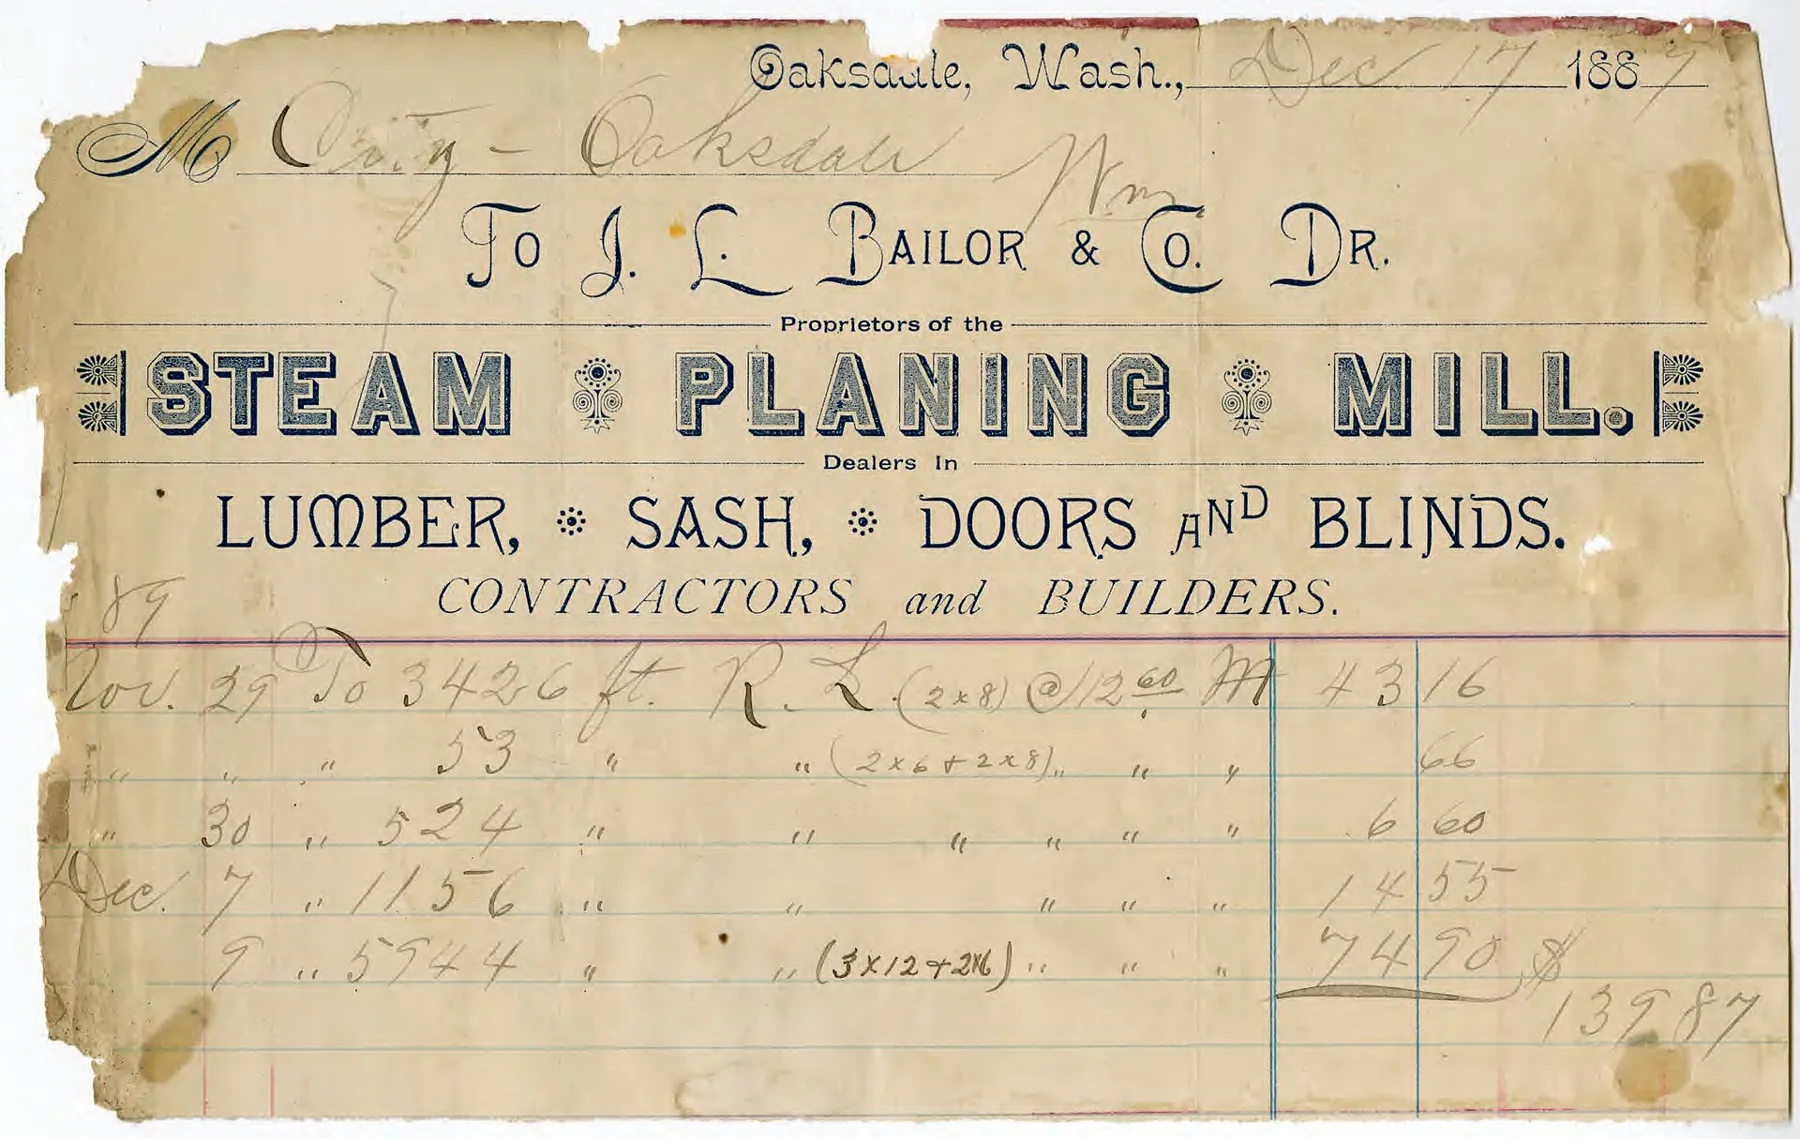 Oaksdale, Wash., Dec 17 1889
M City - Oaksdale Wn.
To J. L. Bailor & Co. Dr.
Proprietors of the
STEAM PLANING MILL.
Dealers In
LUMBER, SASH, DOORS AND BLINDS.
CONTRACTORS and BUILDERS.
89
Nov. 29 To 3426 ft. R. L. (2x8) @ 12 60 M 43 16
" " " 53 " " (2x6 + 2x8) " " " 66
" 30 " 524 " " " " " " 6 60
Dec. 7 " 1156 " " " " " 14 55
9 " 5944 " " (3x12 + 2x6) " " " 74 90 $
139 87